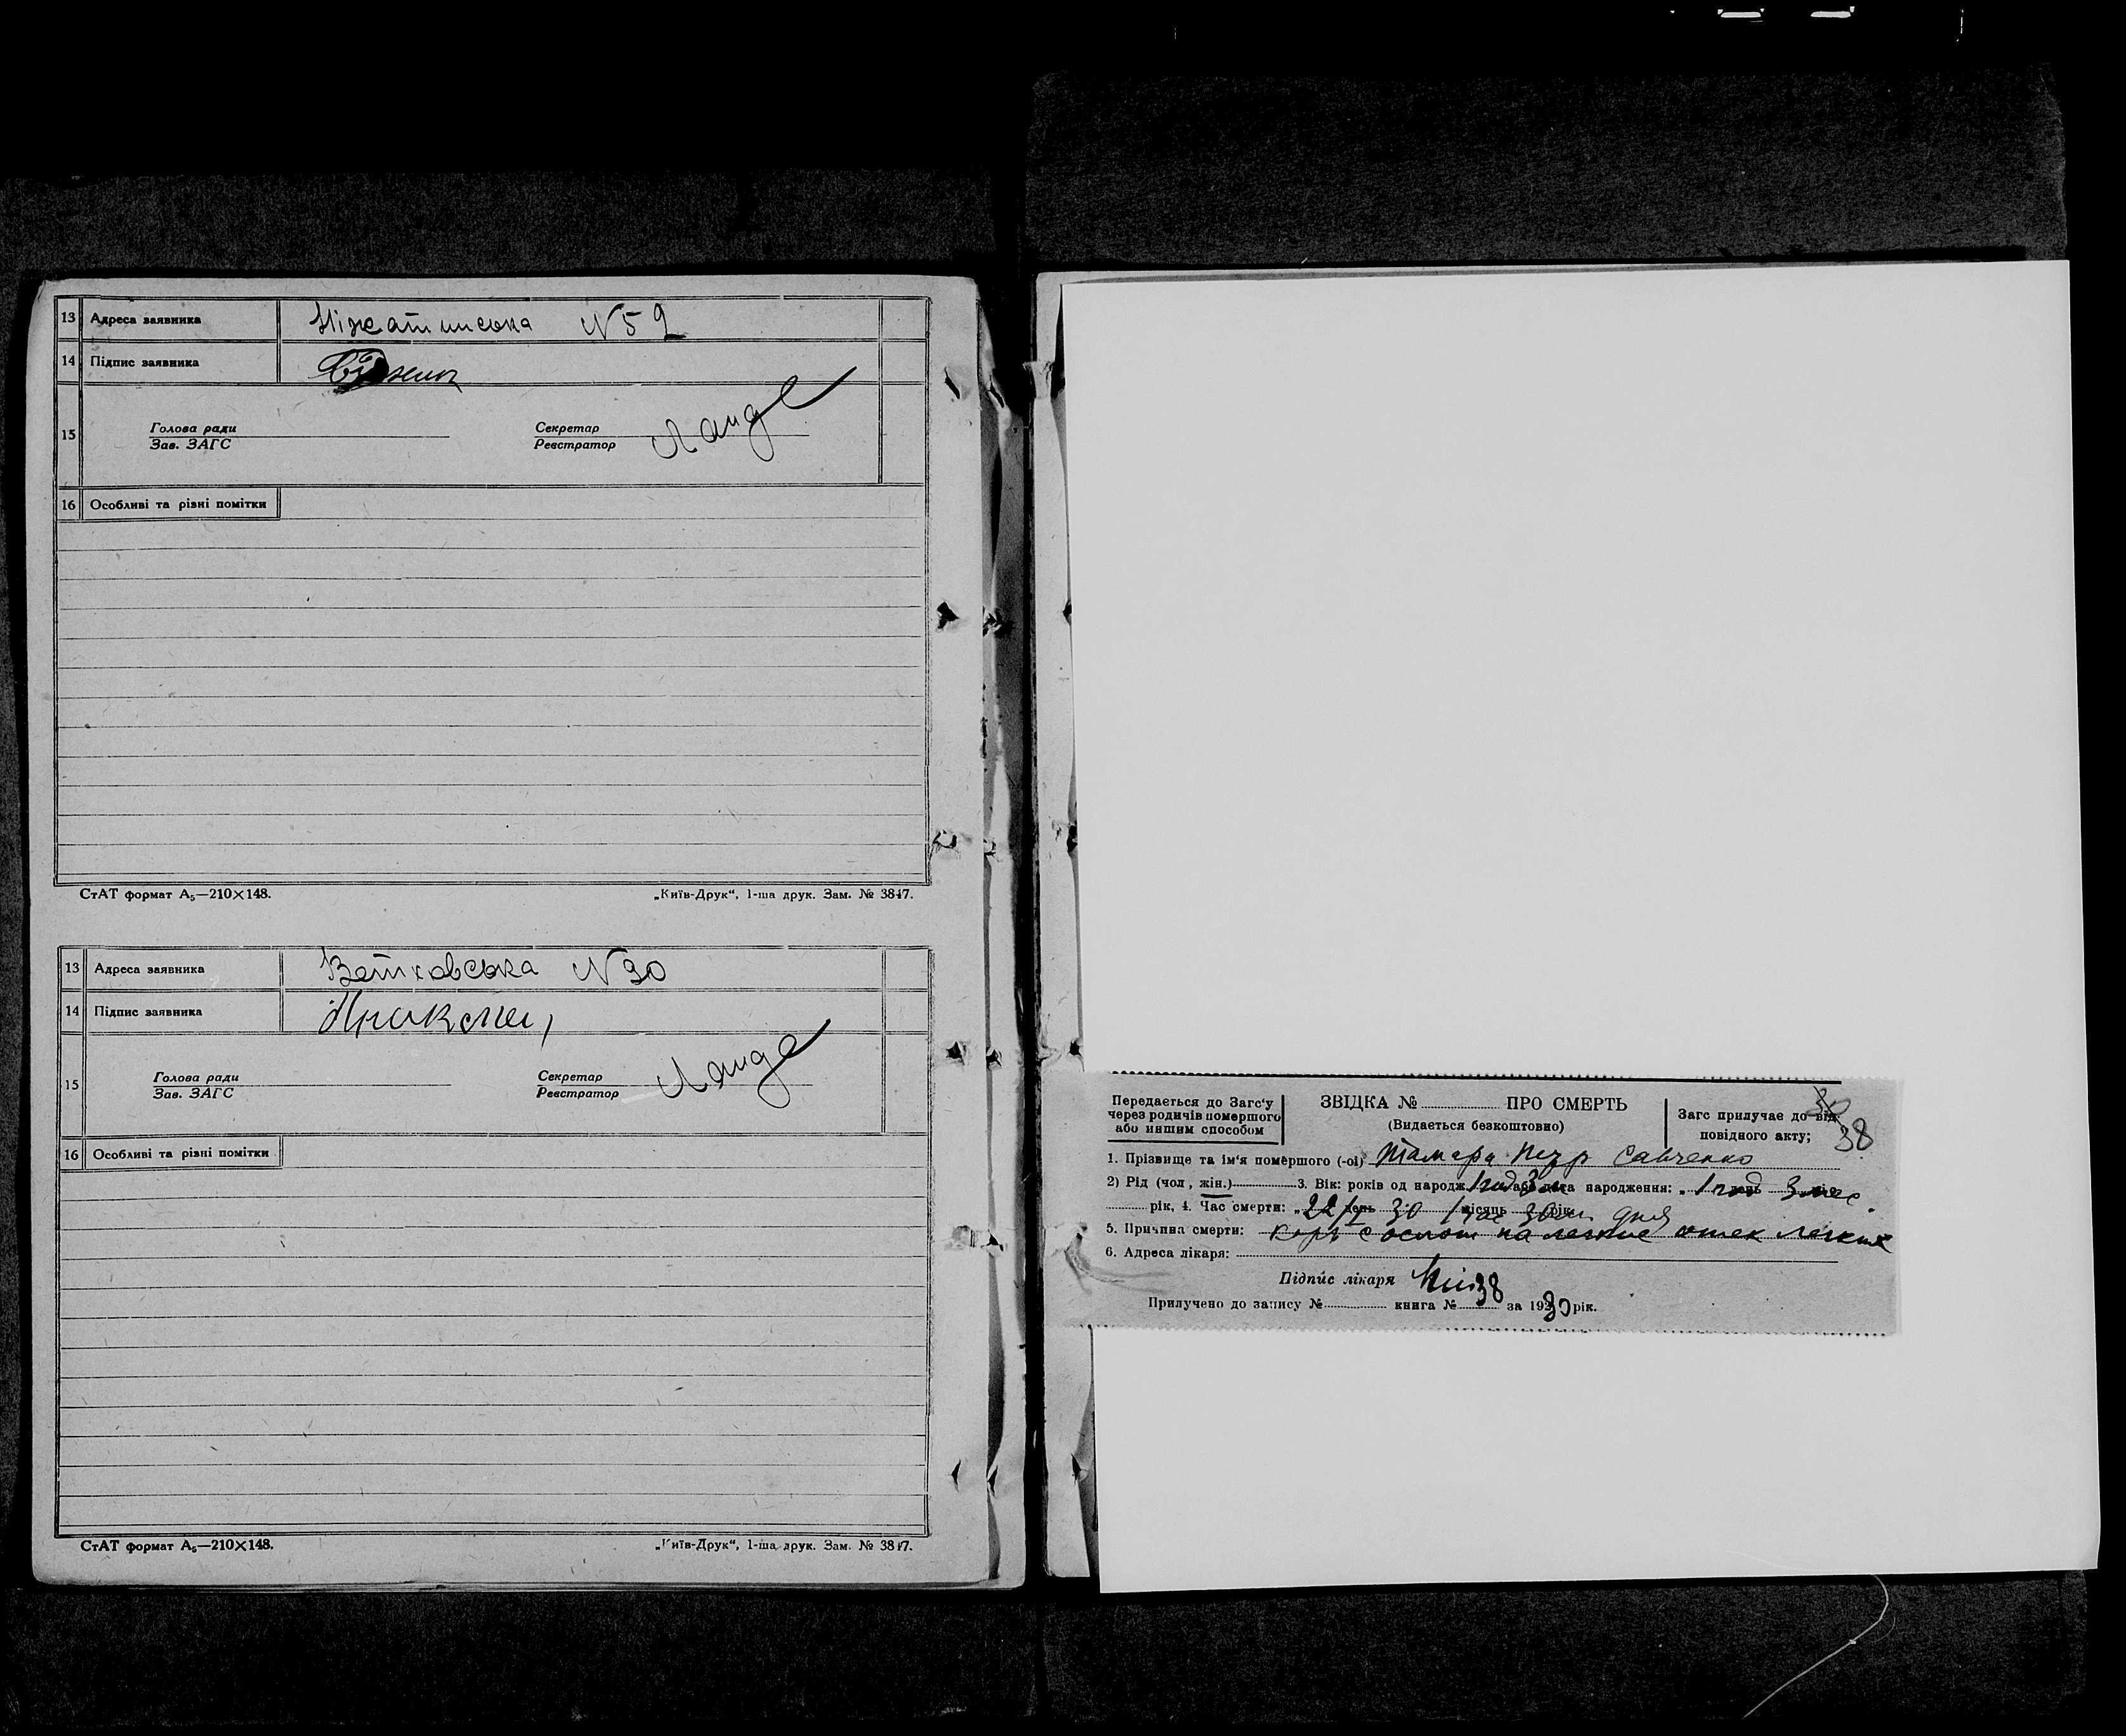 13 Адреса заявника Ніжатинська N 59
14 Підпис заявника
15 Голова ради Секретар Ланде
Зав. ЗАГС Реєстратор
16 Особливі та різні помітки
СтАТ формат А5—210×148. „Київ-Друк“, 1-ша друк. Зам. № 3847.
13 Адреса заявника Ветковська N 30
14 Підпис заявника
15 Голова ради Секретар Ланде
Зав. ЗАГС Реєстратор
16 Особливі та різні помітки
СтАТ формат А5—210×148. „Київ-Друк“, 1-ша друк. Зам. № 3847.
Передається до Загс'у
через родичів помершого
або иншим способом
ЗВІДКА № ПРО СМЕРТЬ
(Видається безкоштовно)
Загс прилучає до від-
повідного акту; 38
1. Прізвище та ім'я помершого (-ої) Тамара Савченко
2) Рід (чол, жін.) 3. Вік: років од народж. 1 год 3 м або дата народження: „ 1 год день 3 мес
рік, 4. Час смерти: „ 22/I день 30 1 час місяць 30 м. рік. дня
5. Причина смерти: корь с ослож на легкие отек легких
6. Адреса лікаря:
Підпис лікаря
Прилучено до запису № книга № 38 за 1930 рік.